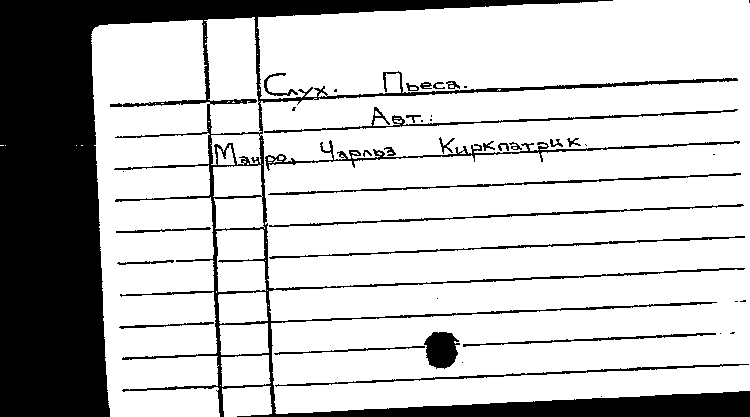 Слух. Пьеса.
Авт.:
Манро, Чарльз Киркпатрик.